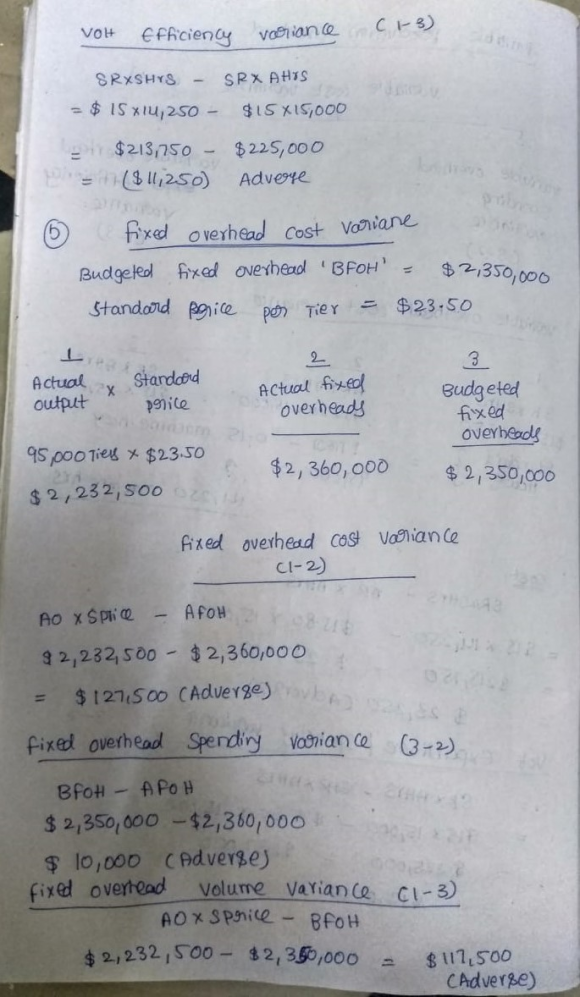 VOH Efficiency variance (1-3)
SRxSHrs - SRxAHrs
= $ 15 x 14,250 - $15 x 15,000
= $213,750 - $225,000
= ($11,250) Adverse
(5) fixed overhead cost variane
Budgeted fixed overhead 'BFOH' = $2,350,000
Standard price per Tier = $23.50
1 2 3
Actual output x Standard price Actual fixed overheads Budgeted fixed overheads
95,000 Tiers x $23.50 $2,360,000 $2,350,000
$2,232,500
fixed overhead cost variance
(1-2)
AO x Sprice - AFOH
$2,232,500 - $2,360,000
= $127,500 (Adverse)
fixed overhead Spending variance (3-2)
BFOH - AFOH
$2,350,000 - $2,360,000
$ 10,000 (Adverse)
fixed overhead volume variance (1-3)
AO x Sprice - BFOH
$2,232,500 - $2,350,000 = $117,500
(Adverse)